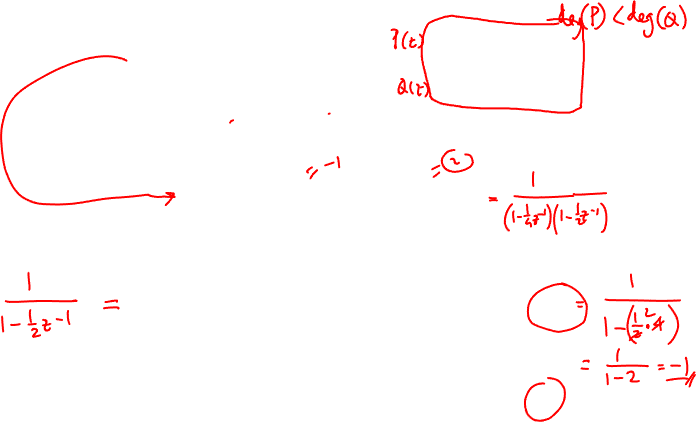 deg(P) < deg(Q)
P(z)
Q(z)
= -1
= 2
= 1 / (1 - 1/4 z^-1)(1 - 1/2 z^-1)
1 / 1 - 1/2 z^-1 =
= 1 / 1 - (1/2 · 4) 2
= 1 / 1-2 = -1